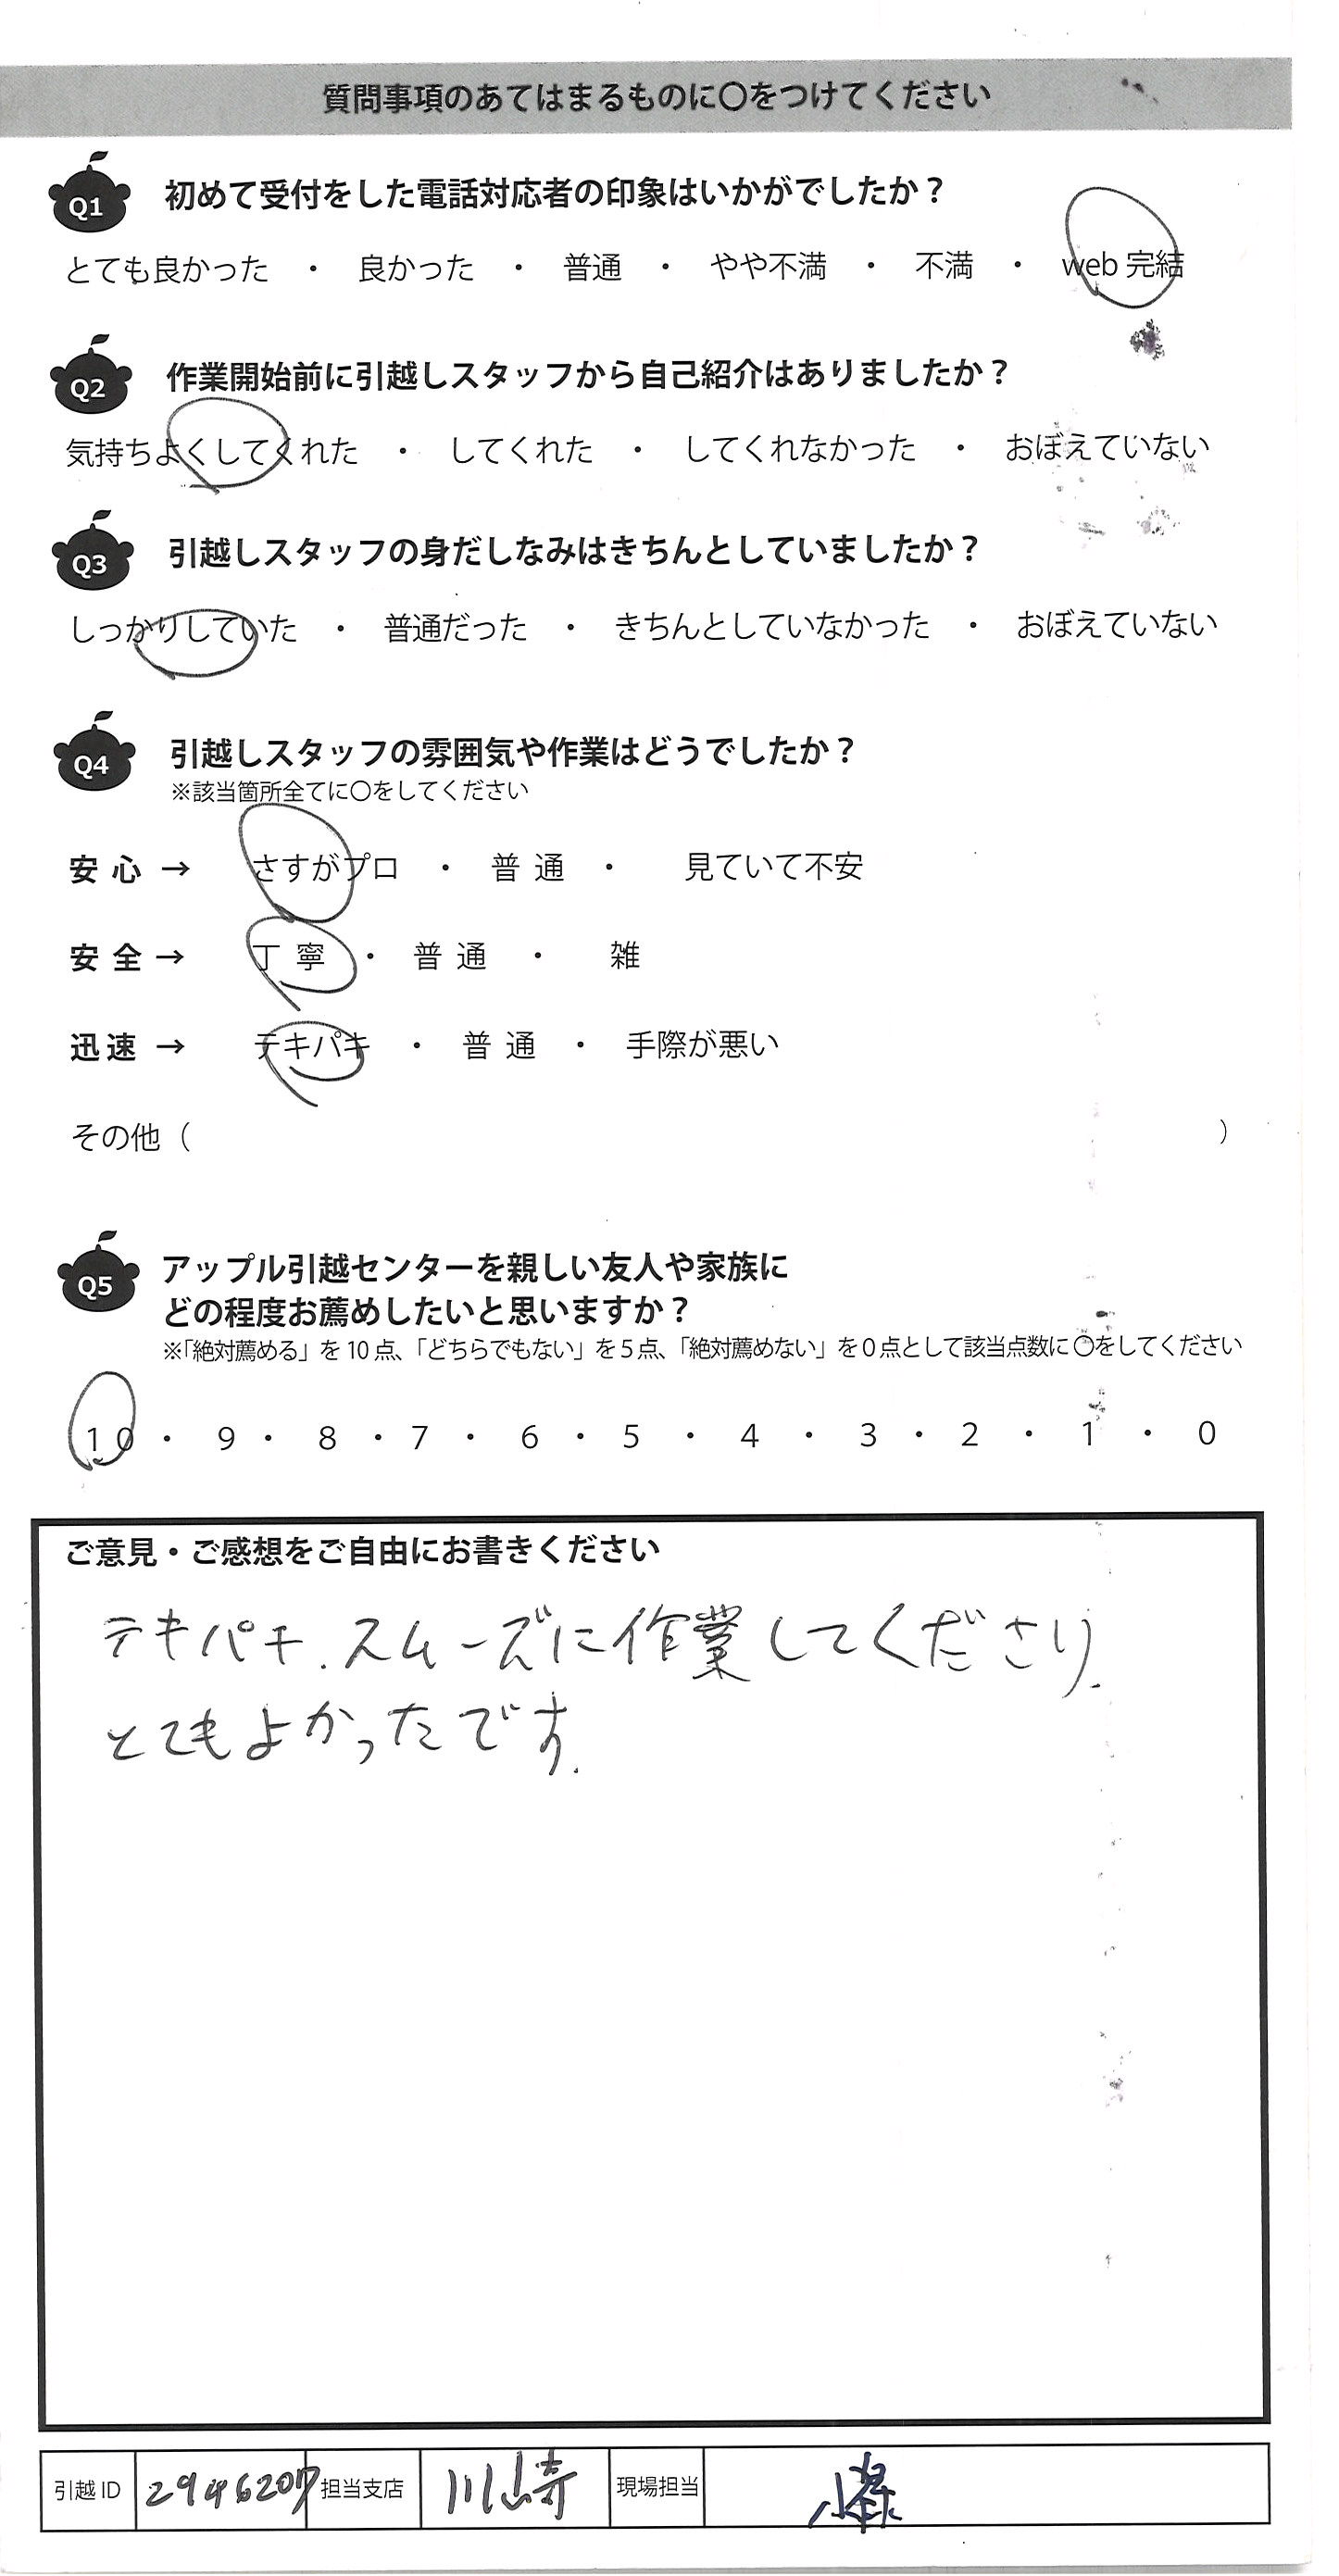 質問事項のあてはまるものに〇をつけてください
Q1 初めて受付をした電話対応者の印象はいかがでしたか？
とても良かった ・ 良かった ・ 普通 ・ やや不満 ・ 不満 ・ web 完結
Q2 作業開始前に引越しスタッフから自己紹介はありましたか？
気持ちよくしてくれた ・ してくれた ・ してくれなかった ・ おぼえていない
Q3 引越しスタッフの身だしなみはきちんとしていましたか？
しっかりしていた ・ 普通だった ・ きちんとしていなかった ・ おぼえていない
Q4 引越しスタッフの雰囲気や作業はどうでしたか？
※該当箇所全てに〇をしてください
安心 → さすがプロ ・ 普通 ・ 見ていて不安
安全 → 丁寧 ・ 普通 ・ 雑
迅速 → テキパキ ・ 普通 ・ 手際が悪い
その他（ ）
Q5 アップル引越センターを親しい友人や家族に
どの程度お薦めしたいと思いますか？
※「絶対薦める」を 10 点、「どちらでもない」を 5 点、「絶対薦めない」を 0 点として該当点数に〇をしてください
10 ・ 9 ・ 8 ・ 7 ・ 6 ・ 5 ・ 4 ・ 3 ・ 2 ・ 1 ・ 0
ご意見・ご感想をご自由にお書きください
テキパキ、スムーズに作業してくださり、
とてもよかったです。
引越 ID 2946207 担当支店 川崎 現場担当